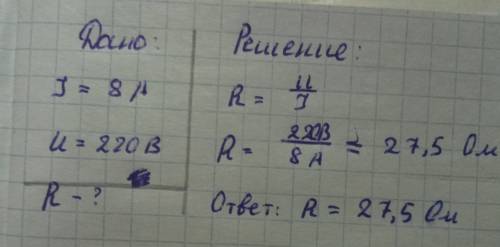 Дано:
I = 8 А
U = 220 В
R - ?
Решение:
R = U/I
R = 220В/8 А = 27,5 Ом
Ответ: R = 27,5 Ом